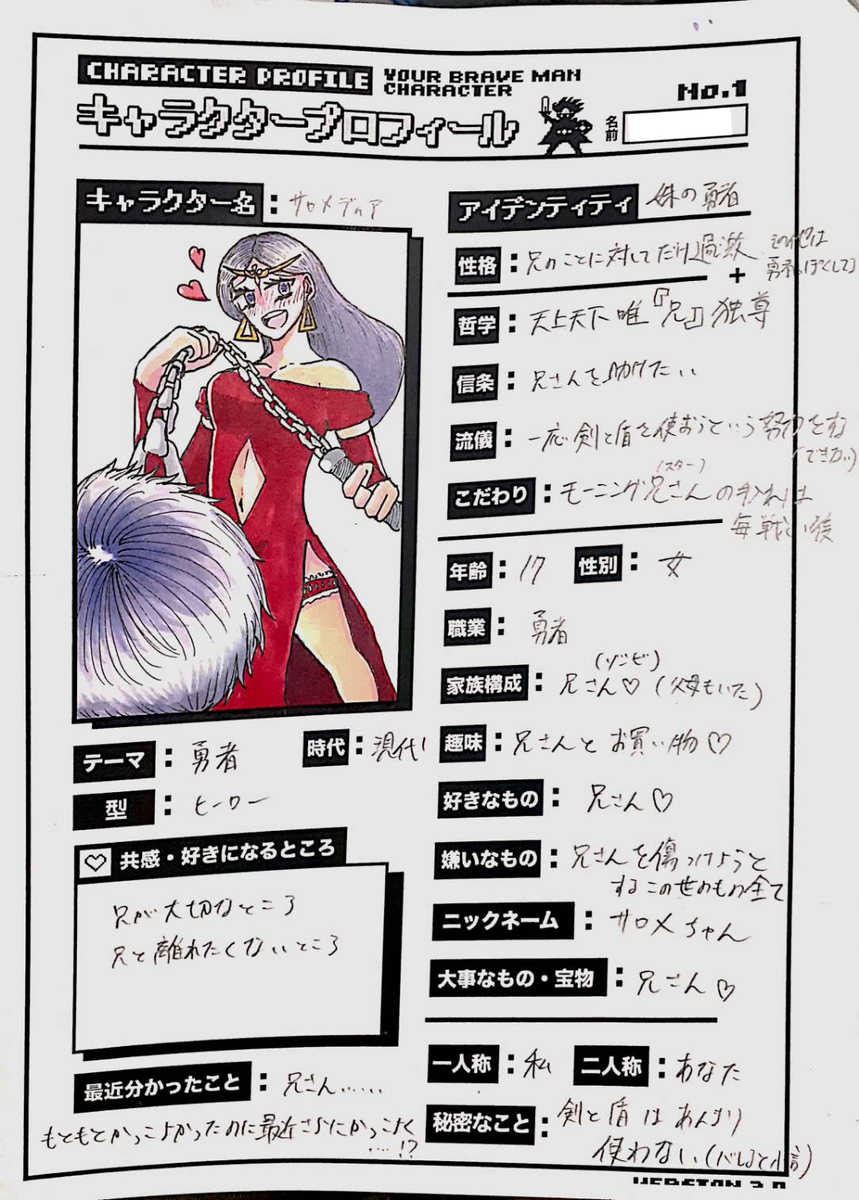 CHARACTER PROFILE
YOUR BRAVE MAN
CHARACTER
No.1
キャラクタープロフィール
名前
キャラクター名：サロメデュア
テーマ：勇者
時代：現代
型：ヒーロー
共感・好きになるところ
兄が大切なところ
兄と離れたくないところ
最近分かったこと：兄さん……
もともとかっこよかったのに最近さらにかっこよく
…!?
アイデンティティ 妹の勇者
性格：兄のことに対してだけ過激
+
その他は
勇者っぽくして
哲学：天上天下唯『兄』独尊
信条：兄さんを助けたい
流儀：一応剣と盾を使おうという努力をする
(できない)
こだわり：モーニング兄さんのお手入れは
(スター)
毎戦い後
年齢：17
性別：女
職業：勇者
家族構成：兄さん♡(父母もいた)
(ゾンビ)
趣味：兄さんとお買い物♡
好きなもの：兄さん♡
嫌いなもの：兄さんを傷つけようと
するこの世のもの全て
ニックネーム：サロメちゃん
大事なもの・宝物：兄さん♡
一人称：私
二人称：あなた
秘密なこと：剣と盾はあんまり
使わない(バレると小言)